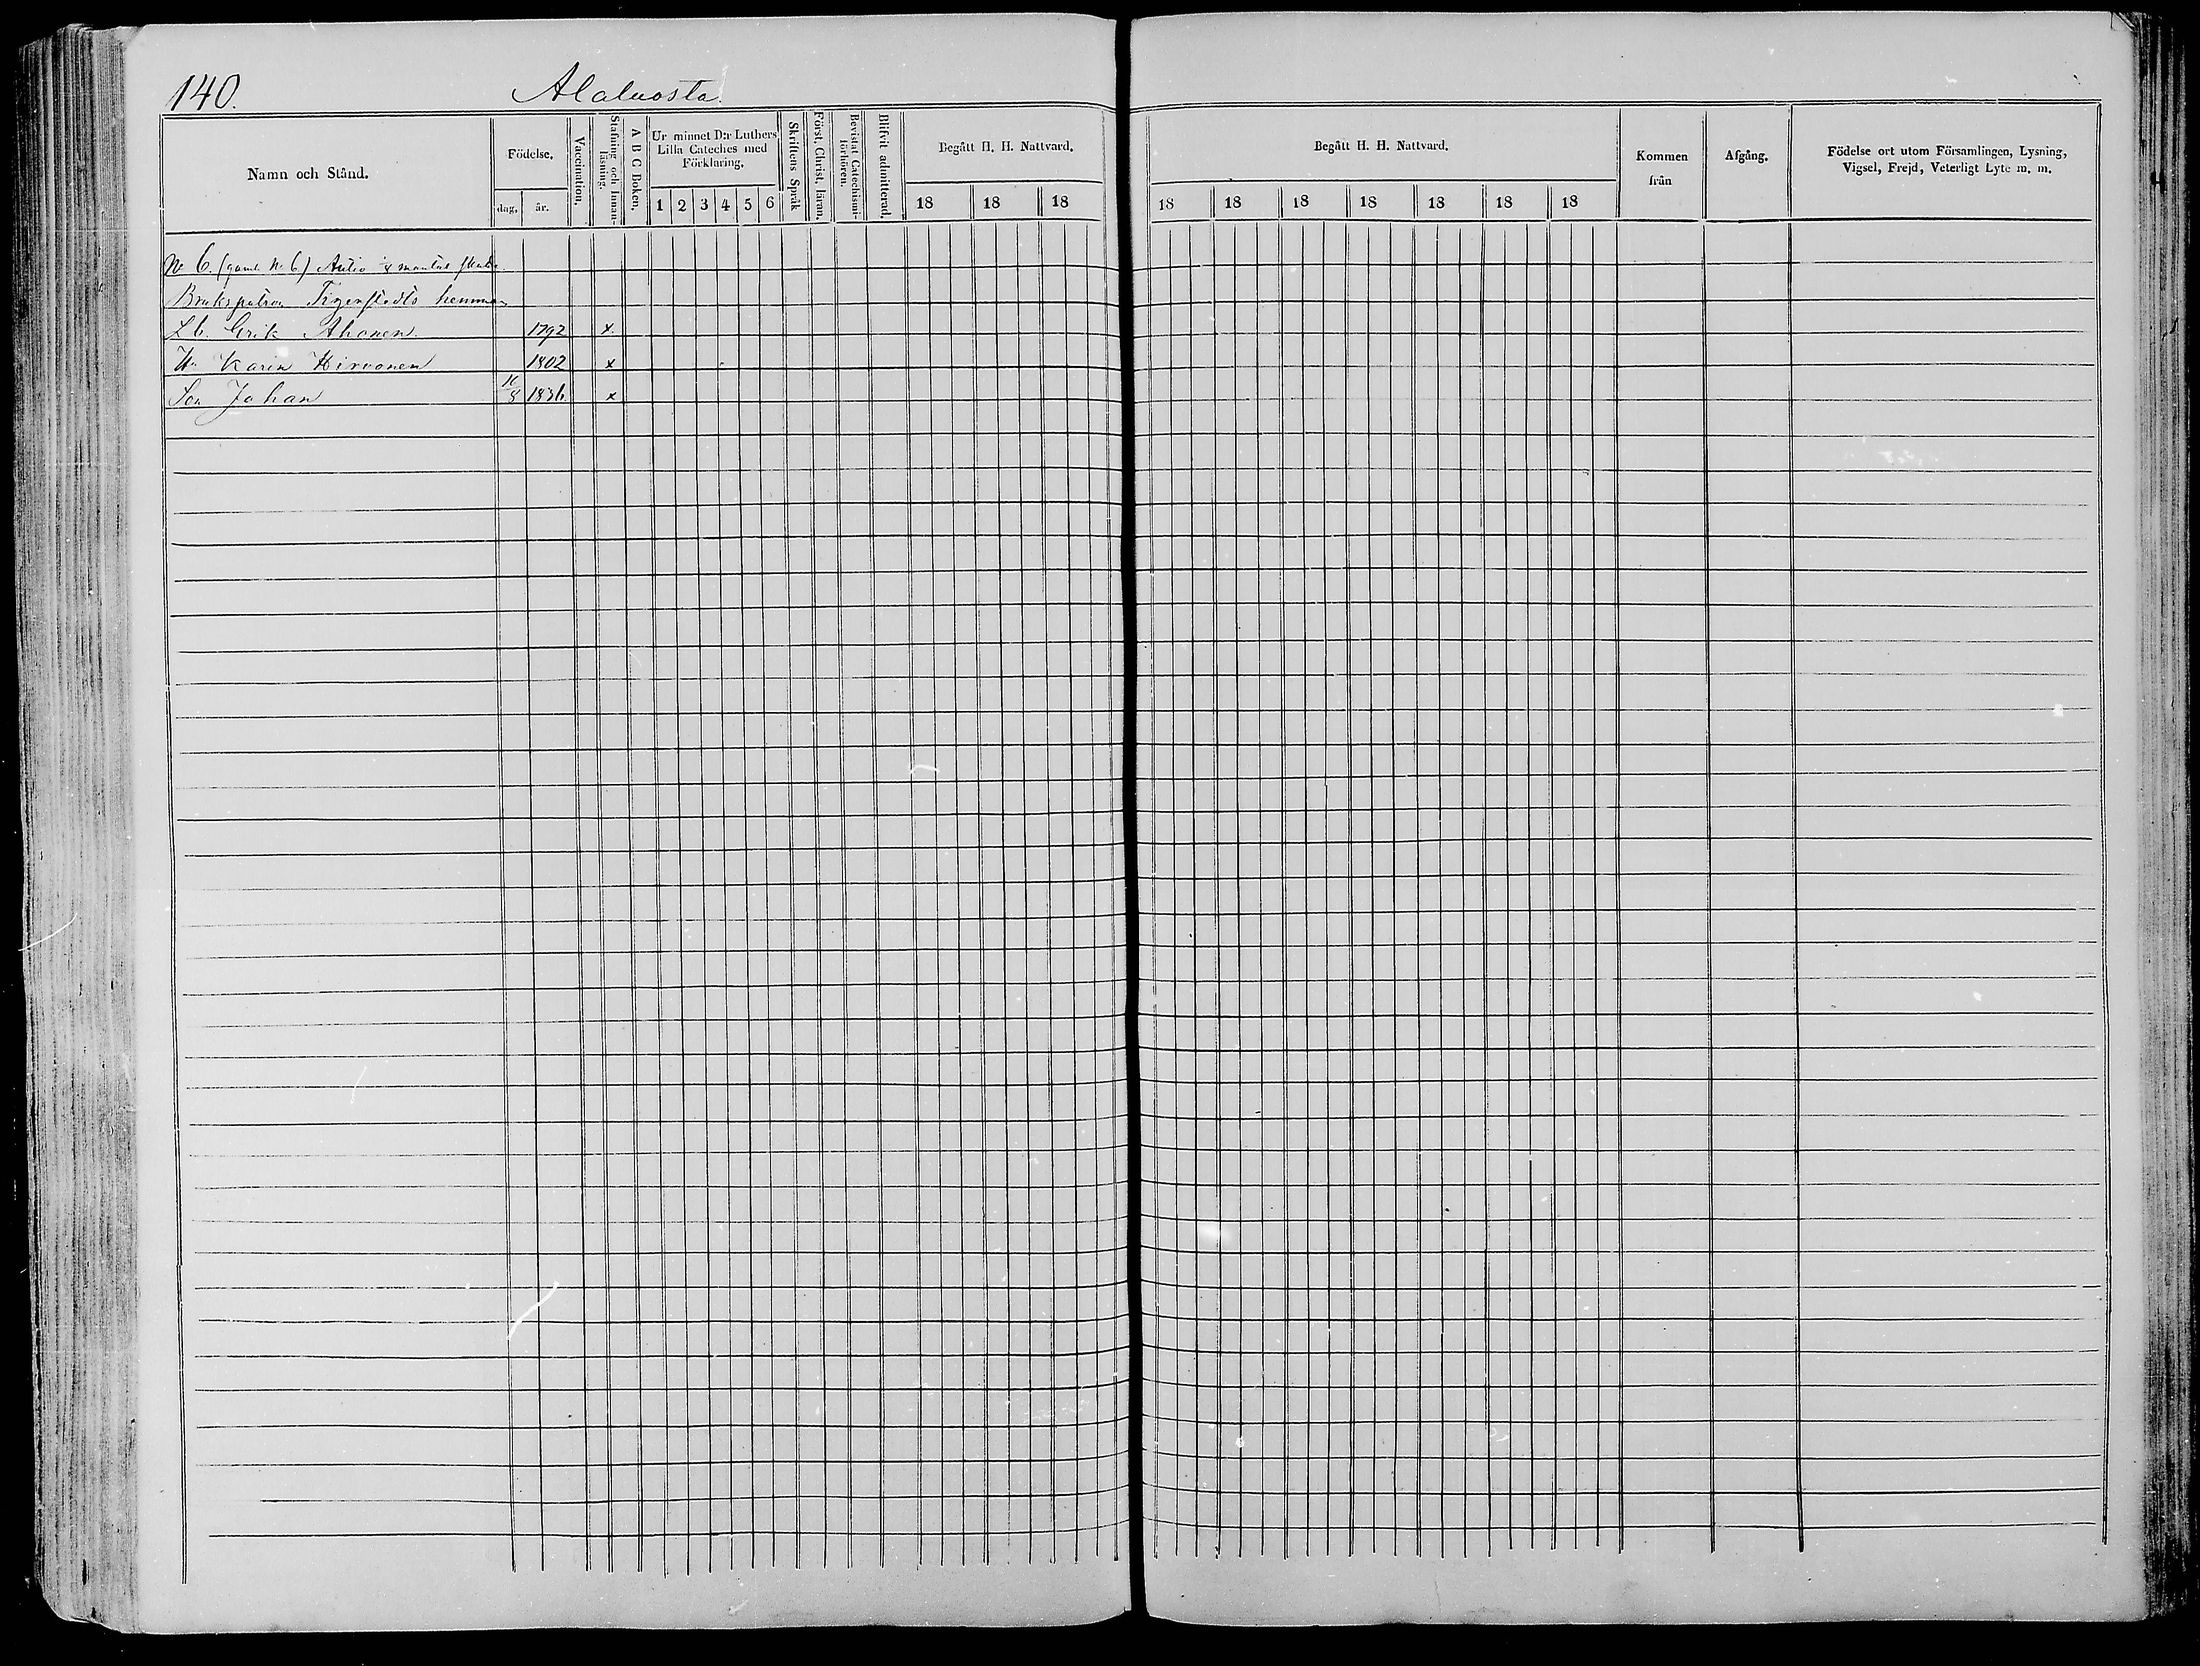 140. Alaluosta
Namn och Stånd.
Födelse.
dag. år.
Vaccination.
Stafning och Innan-
läsning.
A B C Boken.
Ur minnet D:r Luthers
Lilla Cateches med
Förklaring.
1 2 3 4 5 6
Skriftens Språk
Först. Christ. läran.
Bevistat Catechismi-
förhören.
Blifvit admitterad.
Begått H. H. Nattvard.
18 18 18
Begått H. H. Nattvard.
18 18 18 18 18 18 18
Kommen
från
Afgång.
Födelse ort utom Församlingen, Lysning,
Vigsel, Frejd, Veterligt Lyte m. m.
No 6. (gaml. No 6) Autio mantal
Brukspatron Tigerstedts hemman
Lb. Erik Ahonen 1792 x
H. Karin Hirvonen 1802 x
Son Johan 10/8 1836 x